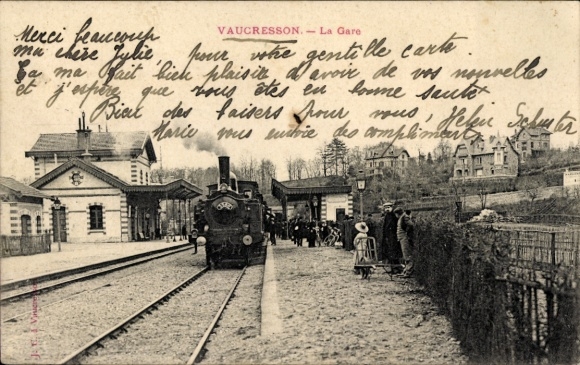 VAUCRESSON. — La Gare
Merci beaucoup
ma chère Julie, pour votre gentille carte.
Ça ma fait bien plaisir d'avoir de vos nouvelles
et j'espère que vous êtes en bonne santé
Bien des baisers pour vous, Helen
Marie vous envoie des compliments